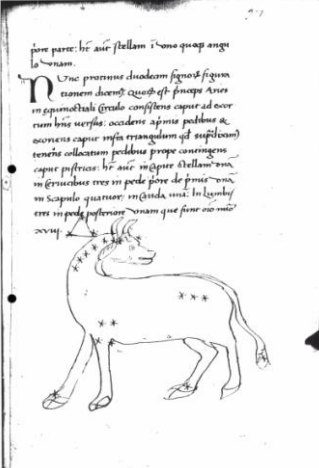 pore parte: ht aut stellam i uno quoqȝ angu
lo unam.
Nunc protinus duodecim signoȝ figura
tionem dicemȝ quoȝ est princeps Aries
in equinoctiali circulo consistens caput ad exor
tum hns versus: occidens a pmis pedibus &
exoriens caput infra triangulum qd supdiximȝ
tenens collocatum pedibus prope contingens
caput pistricis: ht aut in capite stellam unā
in cervicibus tres in pede pore de pmis unā
in scapulo quatuor: in cauda unā: in lumbis
tres in pede posteriore unam que sunt oīo nūo
xviij.